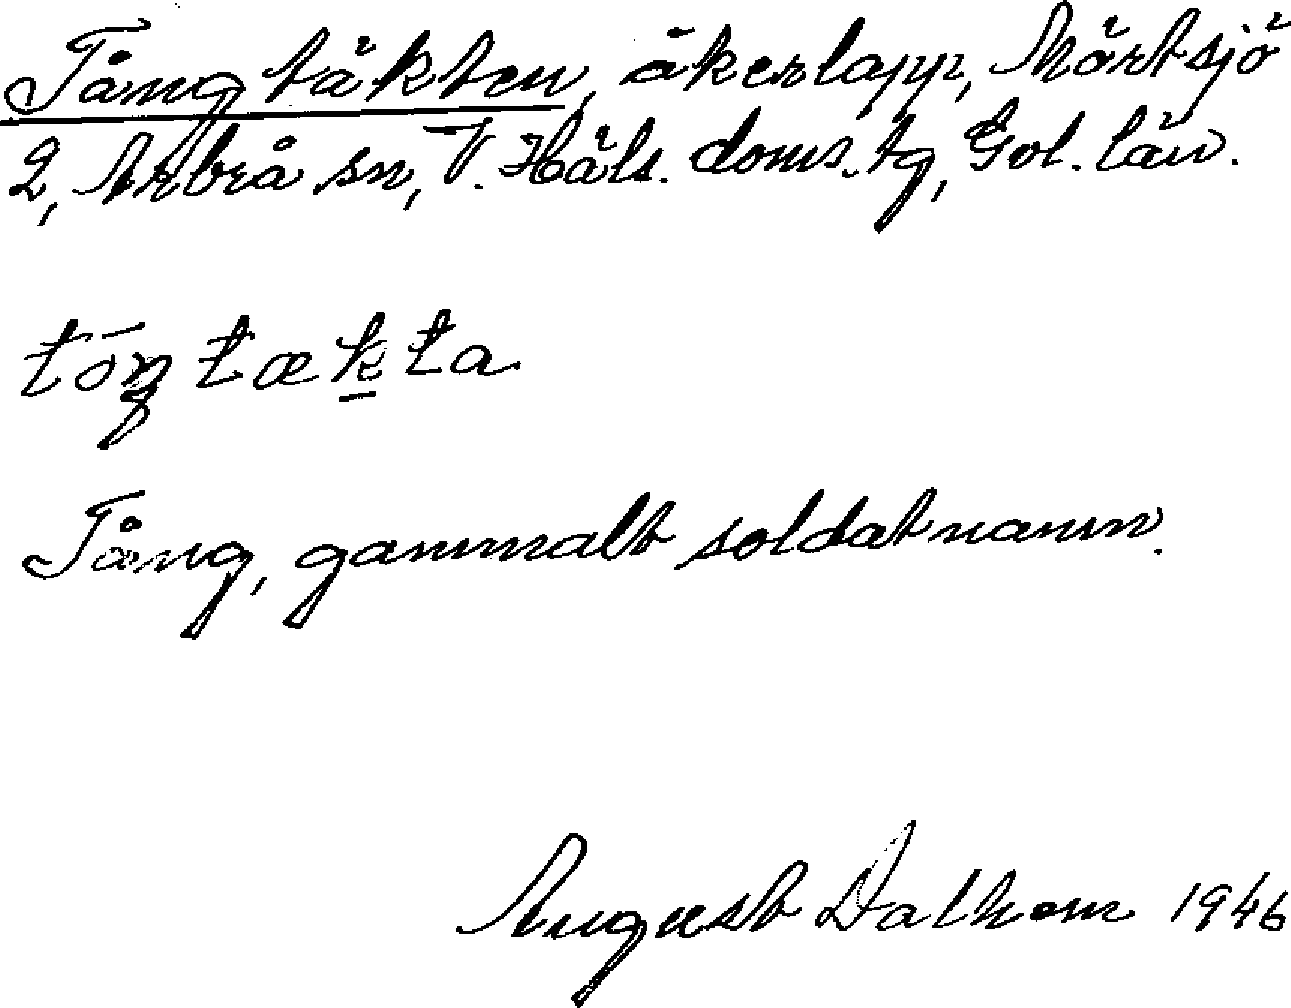 Tångtäkten, åkerlapp, Mörtsjö
2, Arbrå sn, V. Häls. doms. tg, Gvl. län.
tóŋtækta
Tång, gammalt soldatnamn.
August Dalhem 1946